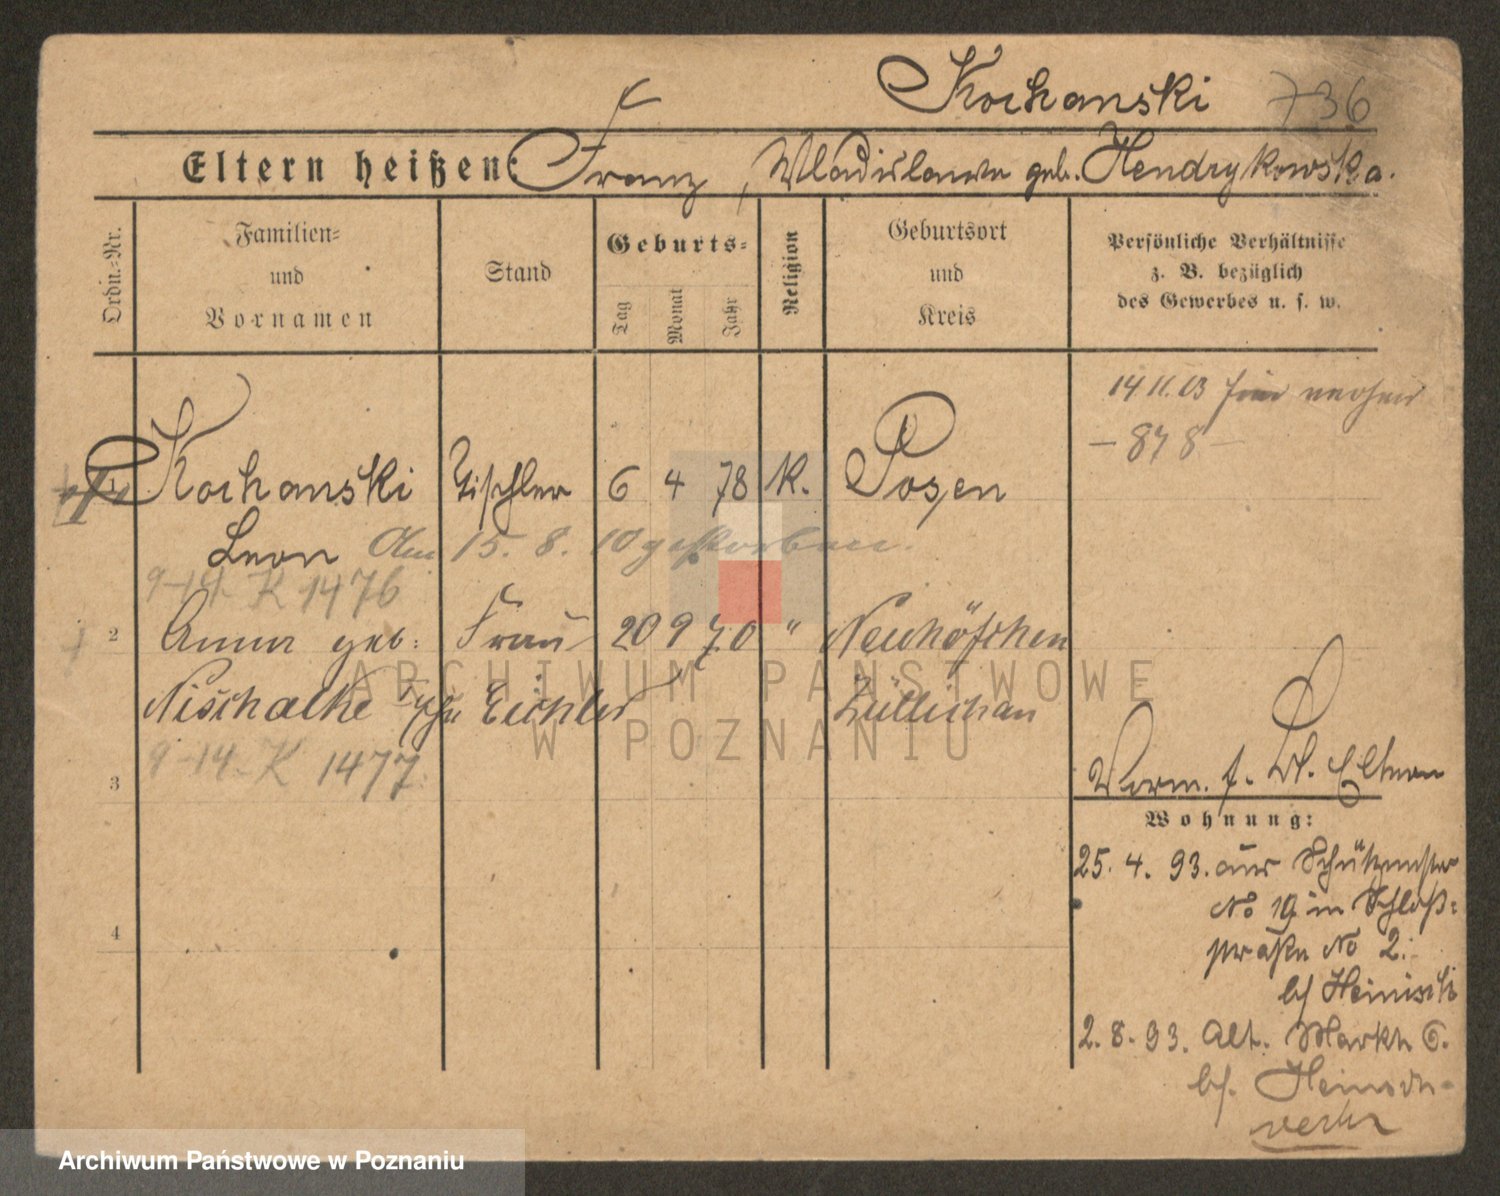 Kochanski 736
Eltern heißen: Franz, Wladislawa geb. Hendrykowska.
Ordn.-Nr.
Familien-
und
Vornamen
Stand
Geburts-
Tag
Monat
Jahr
Religion
Geburtsort
und
Kreis
Persönliche Verhältnisse
z. B. bezüglich
des Gewerbes u. s. w.
14 11. 03
- 878 -
1 Kochanski Tischler 6 4 78 K. Posen
Leon Am 15. 8. 10 gestorben.
9-14. K 1476
2 Anna geb: Frau 20 9 70 " Neuhöfchen
Nischalke Eichler Züllichau
9-14. K 1477.
3
Vorm. f. Bl. Eltern
Wohnung:
25. 4. 93. aus Schützenstr
No 19 in Schloß-
straße No 2.
b/ Heinisch
2. 8. 93. Alt. Markt 6.
b/.
4
ARCHIWUM PAŃSTWOWE
W POZNANIU
Archiwum Państwowe w Poznaniu